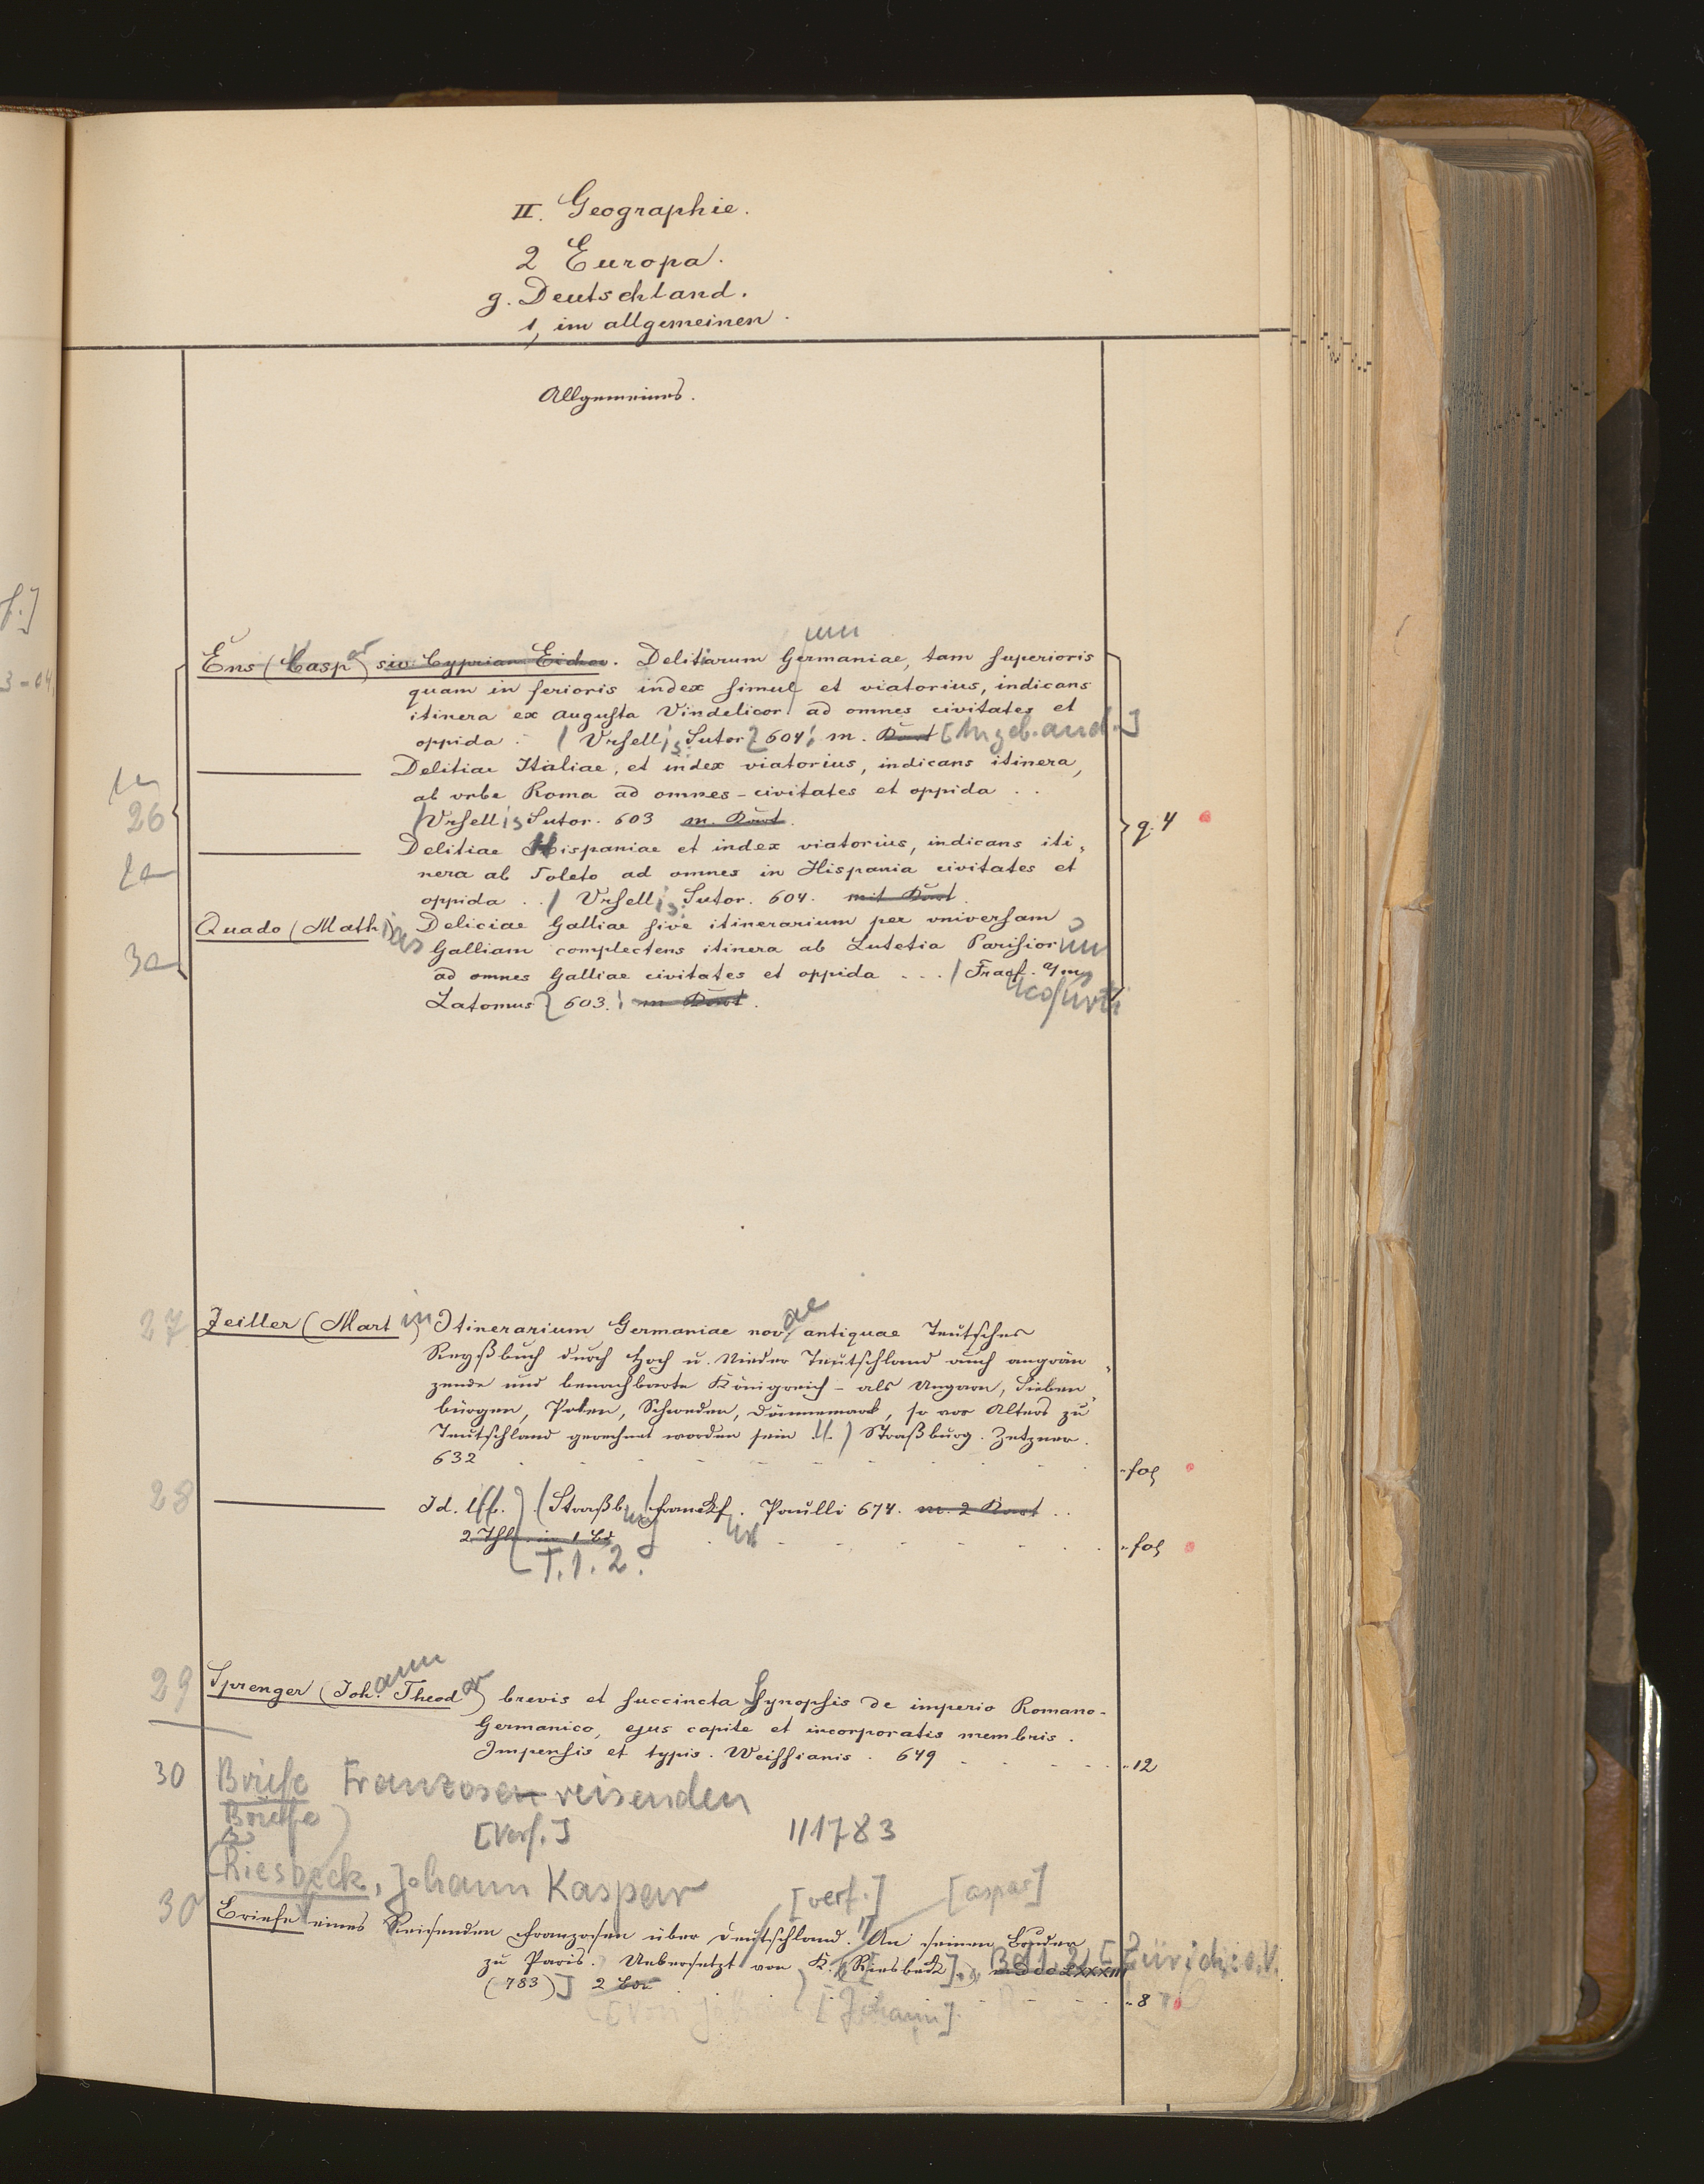 II. Geographie.
2 Europa.
g. Deutschland.
1, im allgemeinen.
Allgemeines.
um
Ens (Casp ar) siv. Cyprian Eichov. Delitiarum Germaniae, tam superioris
quam inferioris index simul et viatorius, indicans
itinera ex Augusta Vindelicor. ad omnes civitates et
oppida. / Ursell is; Sutor 604; m. Kart [Angeb. and.]
Delitiae Italiae, et index viatorius, indicans itinera,
ab urbe Roma ad omnes - civitates et oppida . .
26
/ Ursell is; Sutor. 603 m. Kart.
q. 4
Delitiae Hispaniae et index viatorius, indicans iti-
nera ab Toleto ad omnes in Hispania civitates et
oppida . . / Ursell is; Sutor. 604. mit Kart.
Quado (Math ias) Deliciae Galliae sive itinerarium per universam
Galliam complectens itinera ab Lutetia Parisior um
3a
ad omnes Galliae civitates et oppida . . . / Fracf. a/m
ncofurti
Latomus 603.; m Kart.
27 Zeiller (Mart in) Itinerarium Germaniae nov ae antiquae Teutsches
Reyßbuch durch Hoch u. Nieder Teutschland auch angrän-
zende und benachbarte Königreich - als Ungarn, Sieben-
bürgen, Polen, Schweden, Dännemark, so vor Alters zu
Teutschland gerechnet worden sein ll.) Straßburg. Zetzner.
632 fol
28 Id. l (Straßb urg Franckf. Paulli 674. m. 2 Kart . .
2 Thl. in 1 Bd fol
T. 1. 2.
29 Sprenger (Joh. ann Theod or) brevis et succincta Synopsis de imperio Romano-
Germanico, ejus capite et incorporatis membris.
Impensis et typis. Weissianis. 649 12
30 Briefe Franzosen reisenden
Briefe
[Verf.] // 1783
(Riesbeck, Johann Kaspar
[verf.] [aspar]
30 Briefe eines Reisenden Franzosen über Deutschland. An seinen Bruder
zu Paris. Uebersetzt von K. R. [Riesbeck] Bd 1. 2 [Zürich: o. V.
(783)] 2 Bde 8
[Von Joh [Johann]